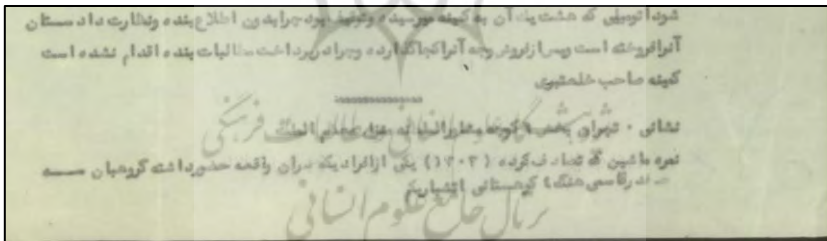 شود اتومبیلی که هشت یک آن به کمینه میرسیده و توقیف بوده چرا بدون اطلاع بنده و نظارت دادستان
آنرا فروخته است و پس از فروش وجه آنرا کجا گذارده و چرا در پرداخت مطالبات بنده اقدام نشده است
کمینه صاحب خلعتبری
نشانی - تهران بخش ۹ کوچه منزل
نمره ماشین که تصادف کرده (۱۲۰۲) یکی از افرادیکه در آن واقعه حضور داشته گروهبان
هنگ ۴ کوهستانی
پژوهشگاه علوم انسانی و مطالعات فرهنگی
پرتال جامع علوم انسانی